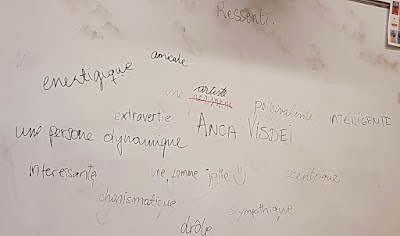 Ressenti.
amicale
energique
une artiste polyvalente INTELLIGENTE
extravertie ANCA VISDEI
une persone dynamique
interessante une femme jolie excentrique
charismatique sympathique
drôle